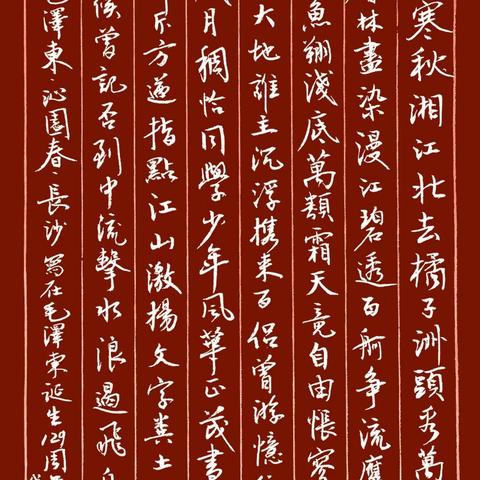 寒秋湘江北去橘子洲頭看萬
林盡染漫江碧透百舸爭流鷹
魚翔淺底萬類霜天竟自由悵寥
大地誰主沉浮携来百侣曾游憶
月稠恰同學少年風華正茂書
斥方遒指點江山激揚文字糞土
侯曾記否到中流擊水浪遏飛
毛澤東·沁園春·長沙 寫在毛澤東誕生129周年